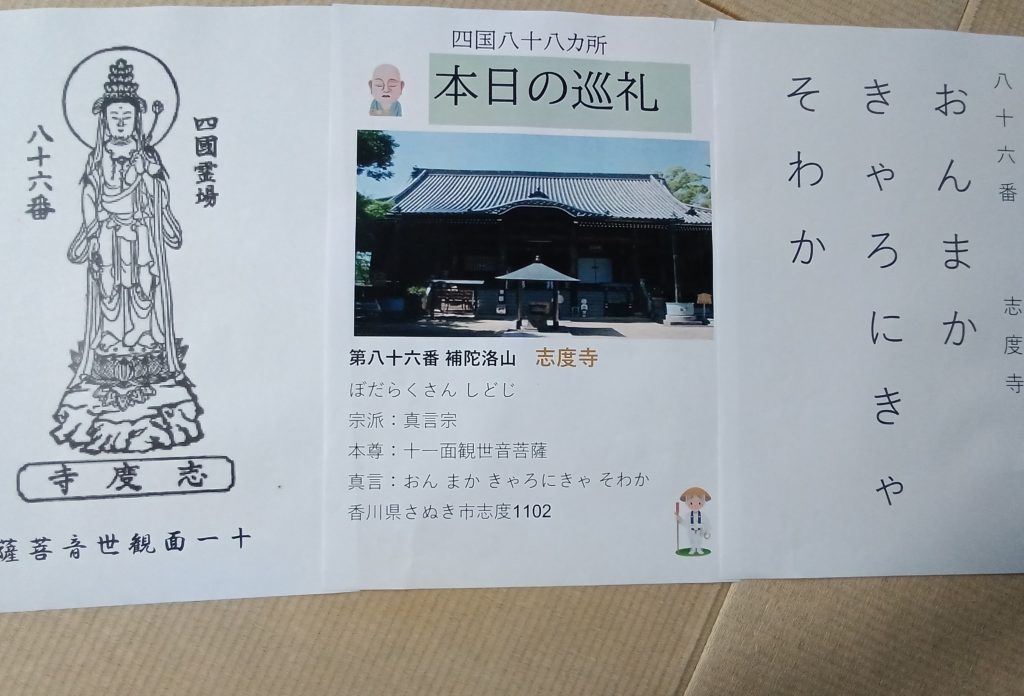 四國霊場
八十六番
志度寺
十一面観世音菩薩
四国八十八カ所
本日の巡礼
第八十六番 補陀洛山 志度寺
ぼだらくさん しどじ
宗派：真言宗
本尊：十一面観世音菩薩
真言：おん まか きゃろにきゃ そわか
香川県さぬき市志度1102
八十六番 志度寺
おんまか
きゃろにきゃ
そわか